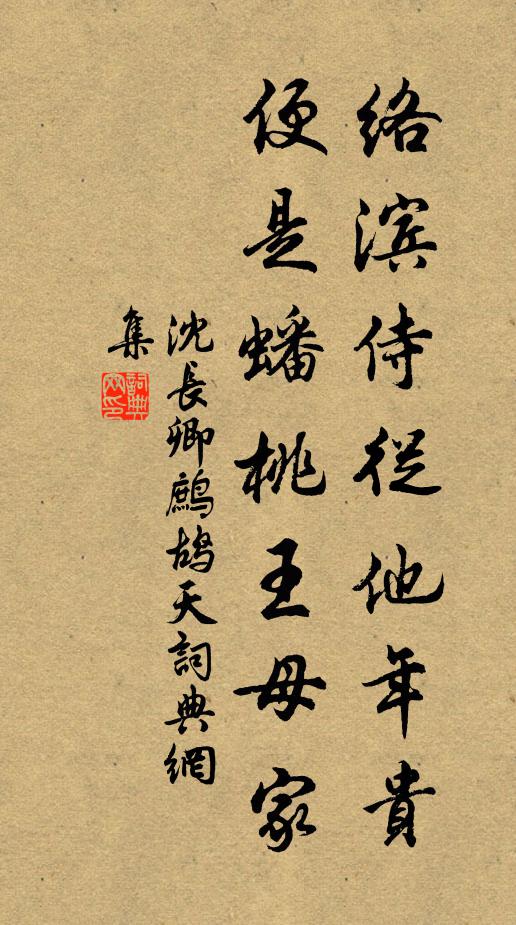 络滨侍從他年貴
便是蟠桃王母家
沈長卿鷓鴣天詞典網
集
詞典網印